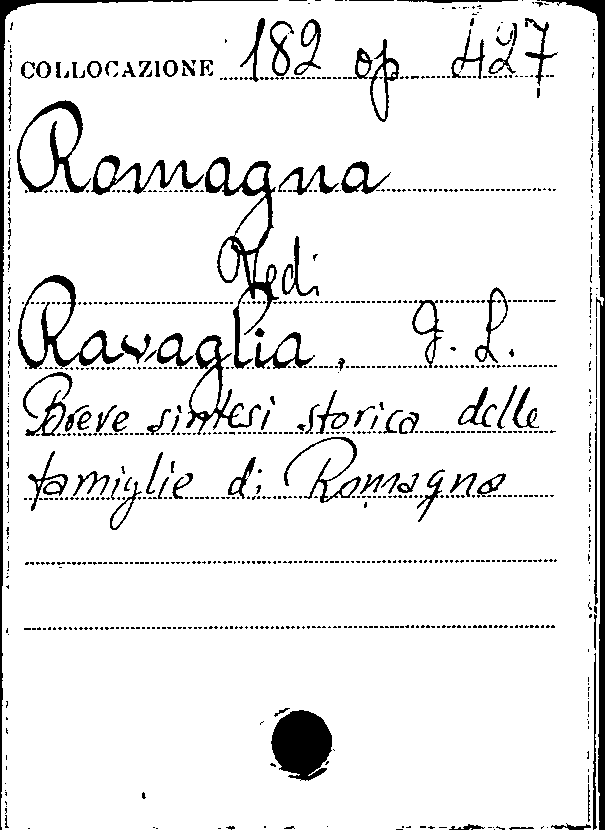 COLLOCAZIONE 182 op 427
Romagna
Vedi
Ravaglia, G. L.
Breve sintesi storica delle
famiglie di Romagna